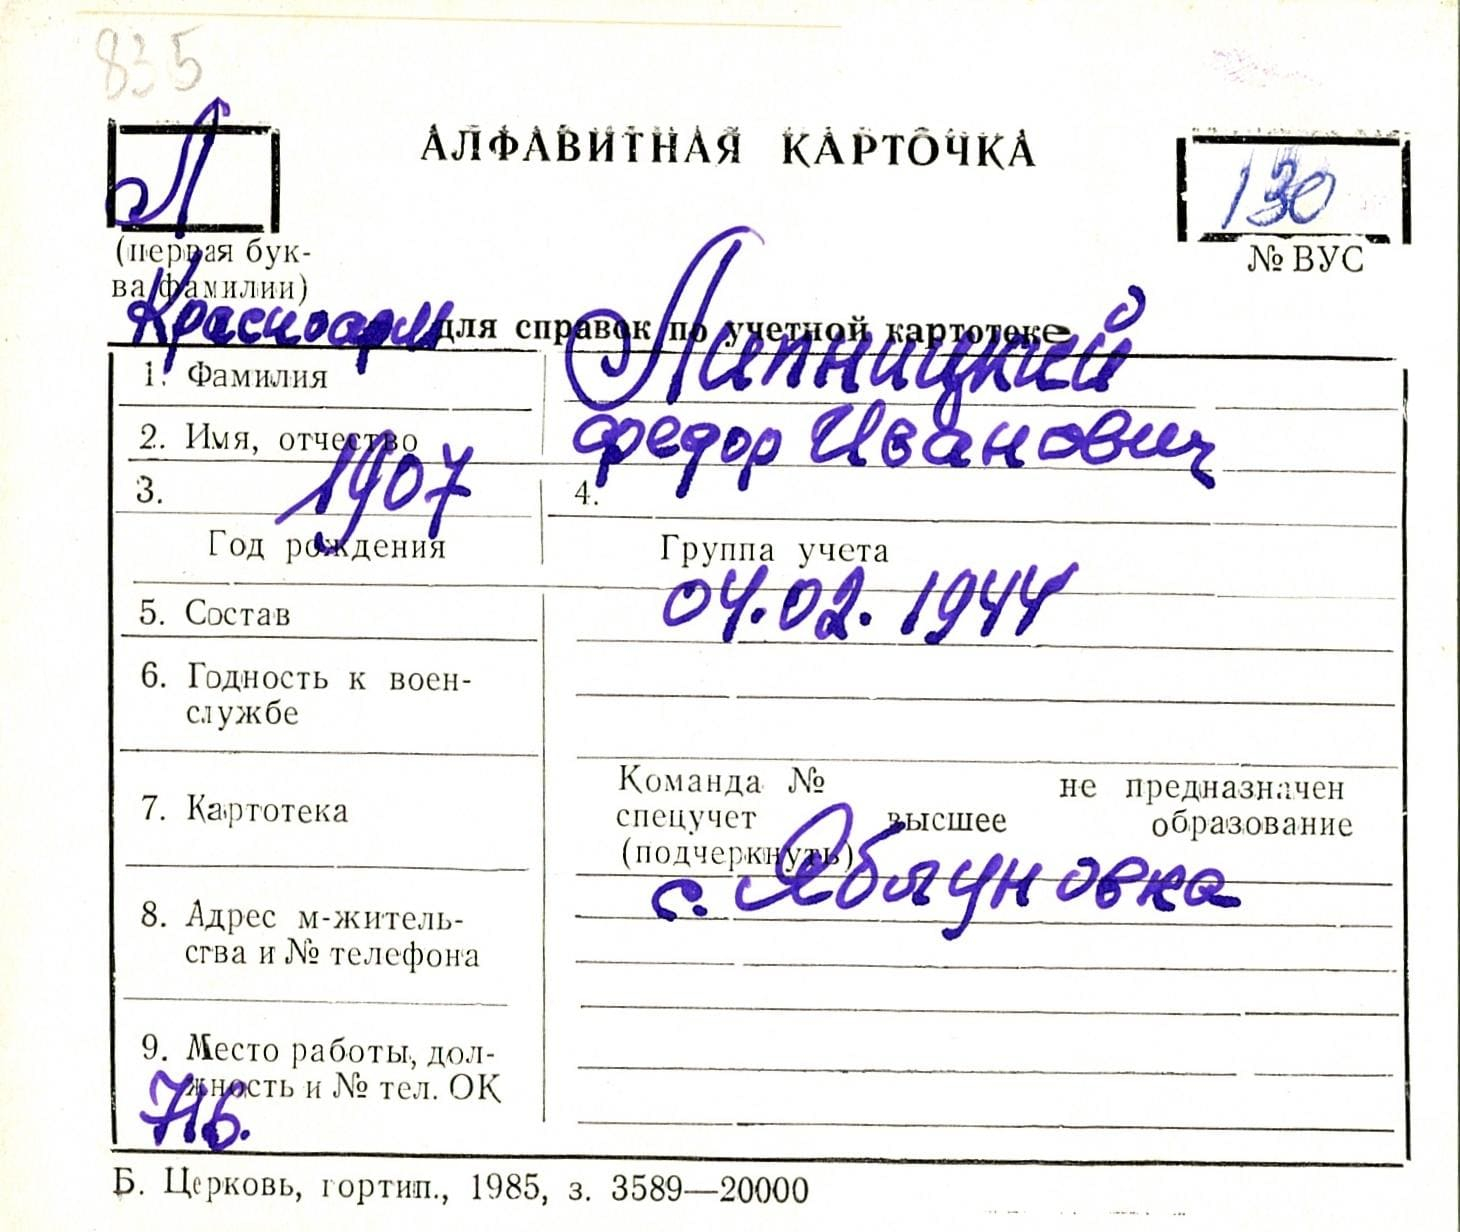 835
Л
АЛФАВИТНАЯ КАРТОЧКА
130
(первая бук-
ва фамилии)
№ ВУС
Красноарм
для справок по учетной картотеке
1. Фамилия Липницкий
2. Имя, отчество Федор Иванович
3. 1907 4.
Год рождения Группа учета
5. Состав 04.02.1944
6. Годность к воен-
службе
7. Картотека
Команда № не предназначен
спецучет высшее образование
(подчеркнуть)
с. Яблуновка
8. Адрес м-житель-
ства и № телефона
9. Место работы, дол-
жность и № тел. ОК
716.
Б. Церковь, гортип., 1985, з. 3589—20000